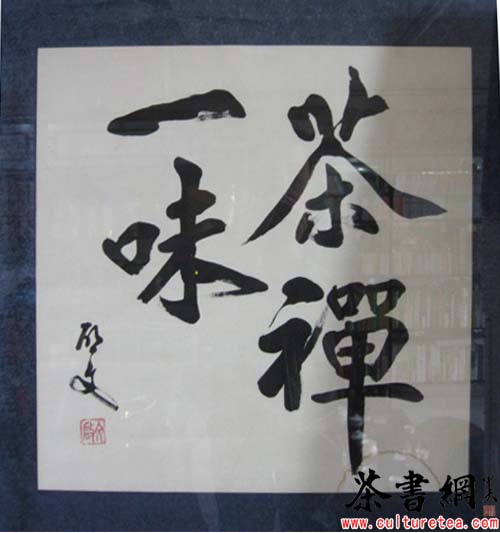 茶禪
一味
啟文
茶書網
www.culturetea.com